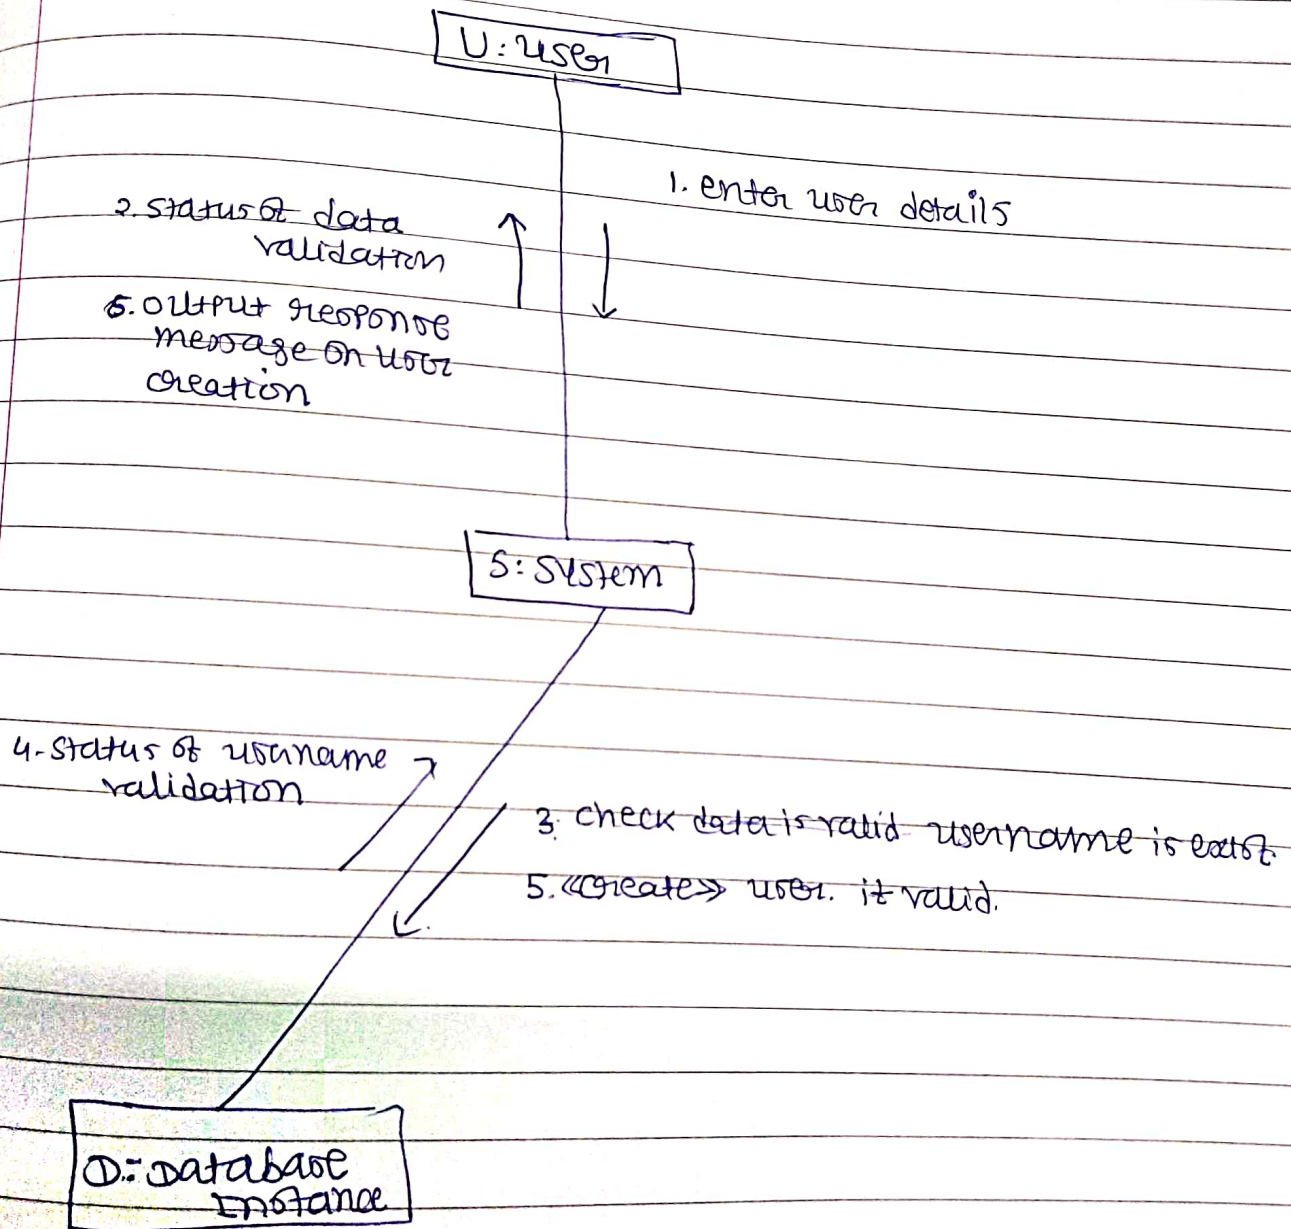 U: user
1. enter user details
2. status of data
validation
6. output response
message on user
creation
S: system
4. status of username
validation
3. check data is valid username is exist
5. <<create>> user. if valid.
D:- Database
Instance